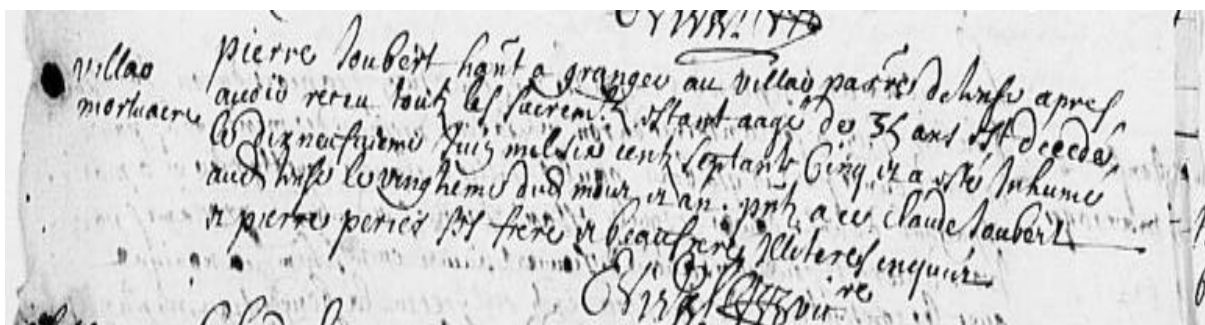 villao
mortuaere
pierre Joubert hant a grangeu au villao parre de apres
avoio receu toutz les sacrem.tz estant aagé de 35 ans est decedé
le dixneufvieme Juin mil six centz septante Cinq et a esté Inhumé
aud le vingtieme dud mois et an. pntz a ce claude Joubert
et pierre peries ses frere et beaufrere Illiteres enquis